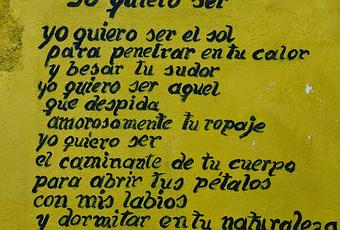 yo quiero ser
yo quiero ser el sol
para penetrar en tu calor
y besar tu sudor
yo quiero ser aquel
que despida
amorosamente tu ropaje
yo quiero ser
el caminante de tu cuerpo
para abrir tus pétalos
con mis labios
y dormitar en tu naturaleza